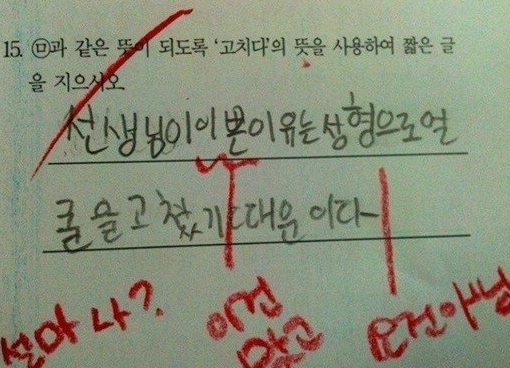 15. ㉤과 같은 뜻이 되도록 '고치다'의 뜻을 사용하여 짧은 글
을 지으시오
선생님이이쁜이유는성형으로얼
굴을고쳤기때문이다
설마 나?
이건
맞고
요건아님